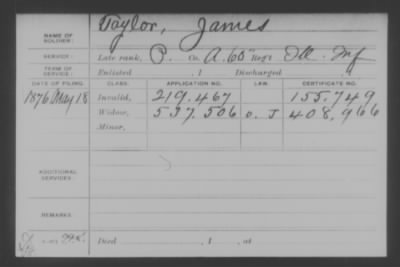 Taylor, James
NAME OF SOLDIER:
SERVICE: Late rank, P. Co. A. 60" Reg't Ill. Inf
TERM OF SERVICE: Enlisted , 1 Discharged , 1
DATE OF FILING. CLASS. APPLICATION NO. LAW. CERTIFICATE NO.
1876 May 18 Invalid, 219.467 155.749
Widow, 537.506 O. J 408,966
Minor,
ADDITIONAL SERVICES:
REMARKS:
Died , 1 , at